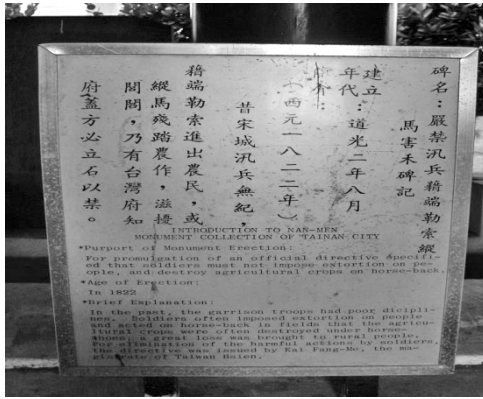 碑名：嚴禁汛兵藉端勒索縱
馬害禾碑記
建立年代：道光二年八月
（西元一八二二年）
昔宋城汛兵無紀，
藉端勒索進出農民，或
縱馬殘踏農作，滋擾
閭閻，乃有台灣府知
府蓋方必立石以禁。
INTRODUCTION TO NAN-MEN
MONUMENT COLLECTION OF TAINAN CITY
*Purport of Monument Erection:
For promulgation of an official directive specifi-
ed that soldiers must not impose extortion on pe-
ople, and destroy agricultural crops on horse-back.
*Age of Erection:
In 1822
*Brief Explanation:
In the past, the garrison troops had poor dicipli-
nes. Soldiers often imposed extortion on people
and acted on horse-back in fields that the agricu-
ltural crops were often destroyed under horse-
shoes; a great loss was brought to rural people.
For elimination of the harmful actions by soldiers,
the directive was issued by Kai Fang-Mo, the ma-
gistrate of Taiwan Hsien.